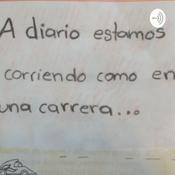 A diario estamos
corriendo como en
una carrera...